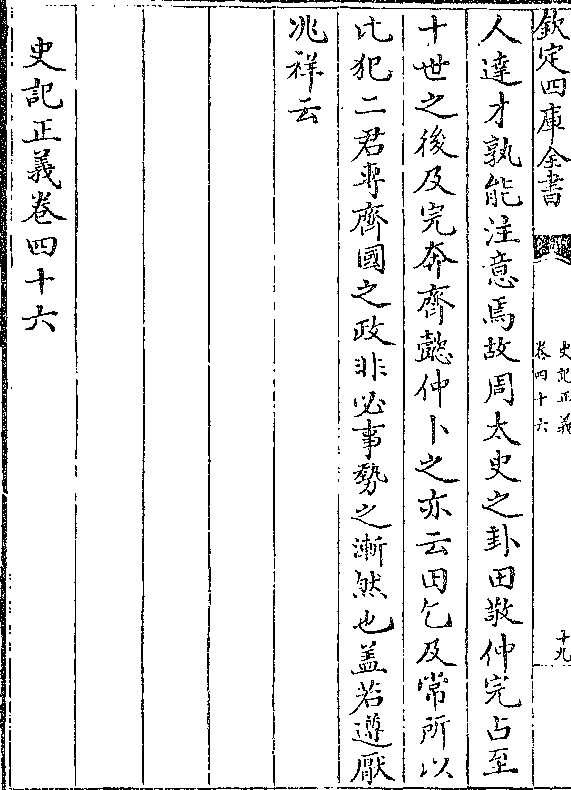 欽定四庫全書
史記正義
卷四十六
十九
人達才孰能注意焉故周太史之卦田敬仲完占至
十世之後及完奔齊懿仲卜之亦云田乞及常所以
比犯二君専齊國之政非必事勢之漸然也蓋若遵厭
兆祥云
史記正義卷四十六